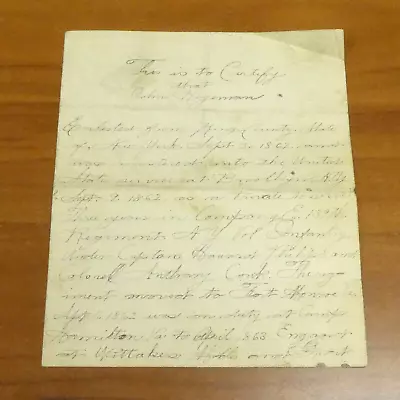 This is to Certify
that
Wyeman
Enlisted from Kings County State
of New York Sept 2 1862 and
was mustered into the United
State service at Brooklyn N.Y.
Sept. 2 1862 as a Private to serve
Three years in Company
Regiment N.Y. Vol Infantry
under Captain Howard and
Colonel Anthony Conk The reg
iment moved to Fort Monroe
Sept 1862 was on duty at Camp
Hamilton Va to April 1863 Engaged
at Whittakers Mills and